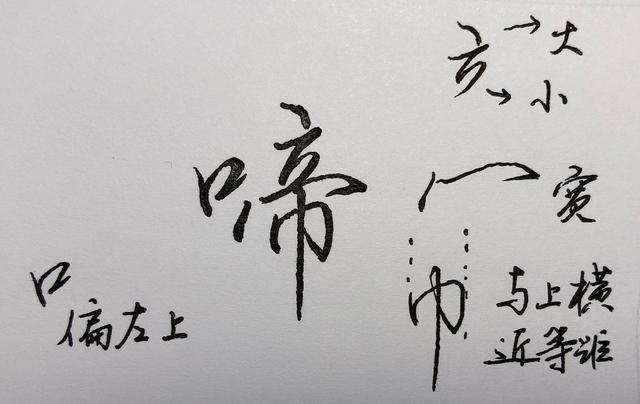 啼
口
偏左上
→大
→小
宽
巾
与上横
近等距